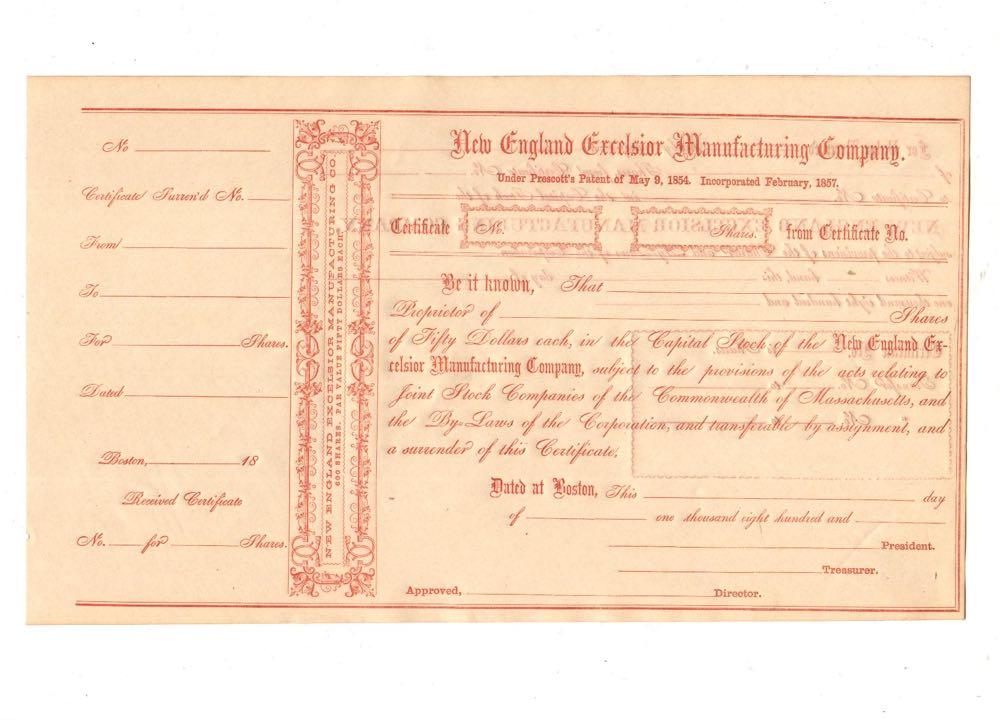 No
Certificate Surren'd No.
From
To
For Shares.
Dated
Boston, 18
Received Certificate
No. for Shares.
NEW ENGLAND EXCELSIOR MANUFACTURING CO.
600 SHARES. PAR VALUE FIFTY DOLLARS EACH.
New England Excelsior Manufacturing Company.
Under Prescott's Patent of May 9, 1854. Incorporated February, 1857.
Certificate No. Shares. from Certificate No.
Be it known, That
Proprietor of Shares
of Fifty Dollars each, in the Capital Stock of the New England Ex-
celsior Manufacturing Company, subject to the provisions of the acts relating to
Joint Stock Companies of the Commonwealth of Massachusetts, and
the By-Laws of the Corporation, and transferable by assignment, and
a surrender of this Certificate.
Dated at Boston, This day
of one thousand eight hundred and
President.
Treasurer.
Approved, Director.